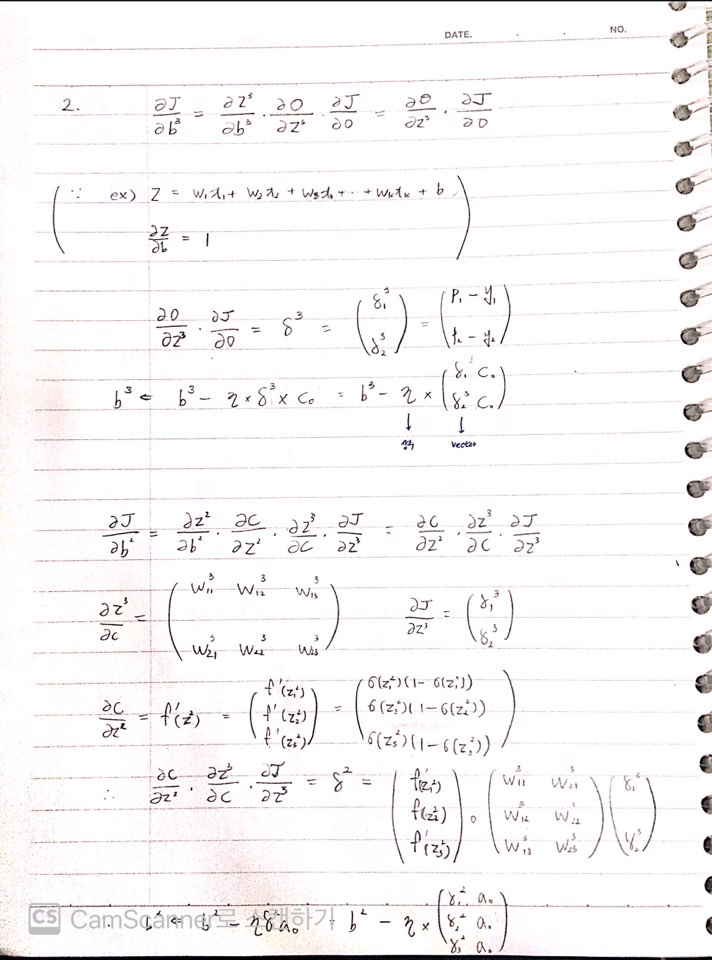 DATE. NO.
2. ∂J/∂b³ = ∂z³/∂b³ · ∂O/∂z³ · ∂J/∂O = ∂O/∂z³ · ∂J/∂O
( ∵ ex) Z = w₁x₁ + w₂x₂ + w₃x₃ + ·· + wₖxₖ + b
∂z/∂b = 1 )
∂O/∂z³ · ∂J/∂O = δ³ = (δ₁³ δ₂³) = (P₁ - y₁ P₂ - y₂)
b³ ← b³ - η × δ³ × C₀ = b³ - η × (δ₁³ C₀ δ₂³ C₀)
↓ ↓
vector
∂J/∂b² = ∂z²/∂b² · ∂C/∂z² · ∂z³/∂C · ∂J/∂z³ = ∂C/∂z² · ∂z³/∂C · ∂J/∂z³
∂z³/∂C = (w₁₁³ w₁₂³ w₁₃³ w₂₁³ w₂₂³ w₂₃³) ∂J/∂z³ = (δ₁³ δ₂³)
∂C/∂z² = f'(z²) = (f'(z₁²) f'(z₂²) f'(z₃²)) = (σ(z₁²)(1-σ(z₁²)) σ(z₂²)(1-σ(z₂²)) σ(z₃²)(1-σ(z₃²)))
∴ ∂C/∂z² · ∂z³/∂C · ∂J/∂z³ = δ² = (f'(z₁²) f'(z₂²) f'(z₃²)) ∘ (w₁₁³ w₂₁³ w₁₂³ w₂₂³ w₁₃³ w₂₃³)(δ₁³ δ₂³)
∴ b² ← b² - ηδa₀ = b² - η × (δ₁² a₀ δ₂² a₀ δ₃² a₀)
CS CamScanner로 스캔하기